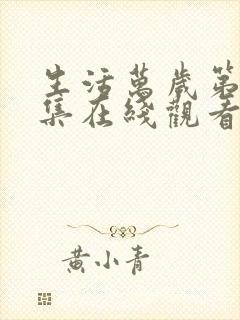 生活萬歲第
集在綫觀看
黃小青